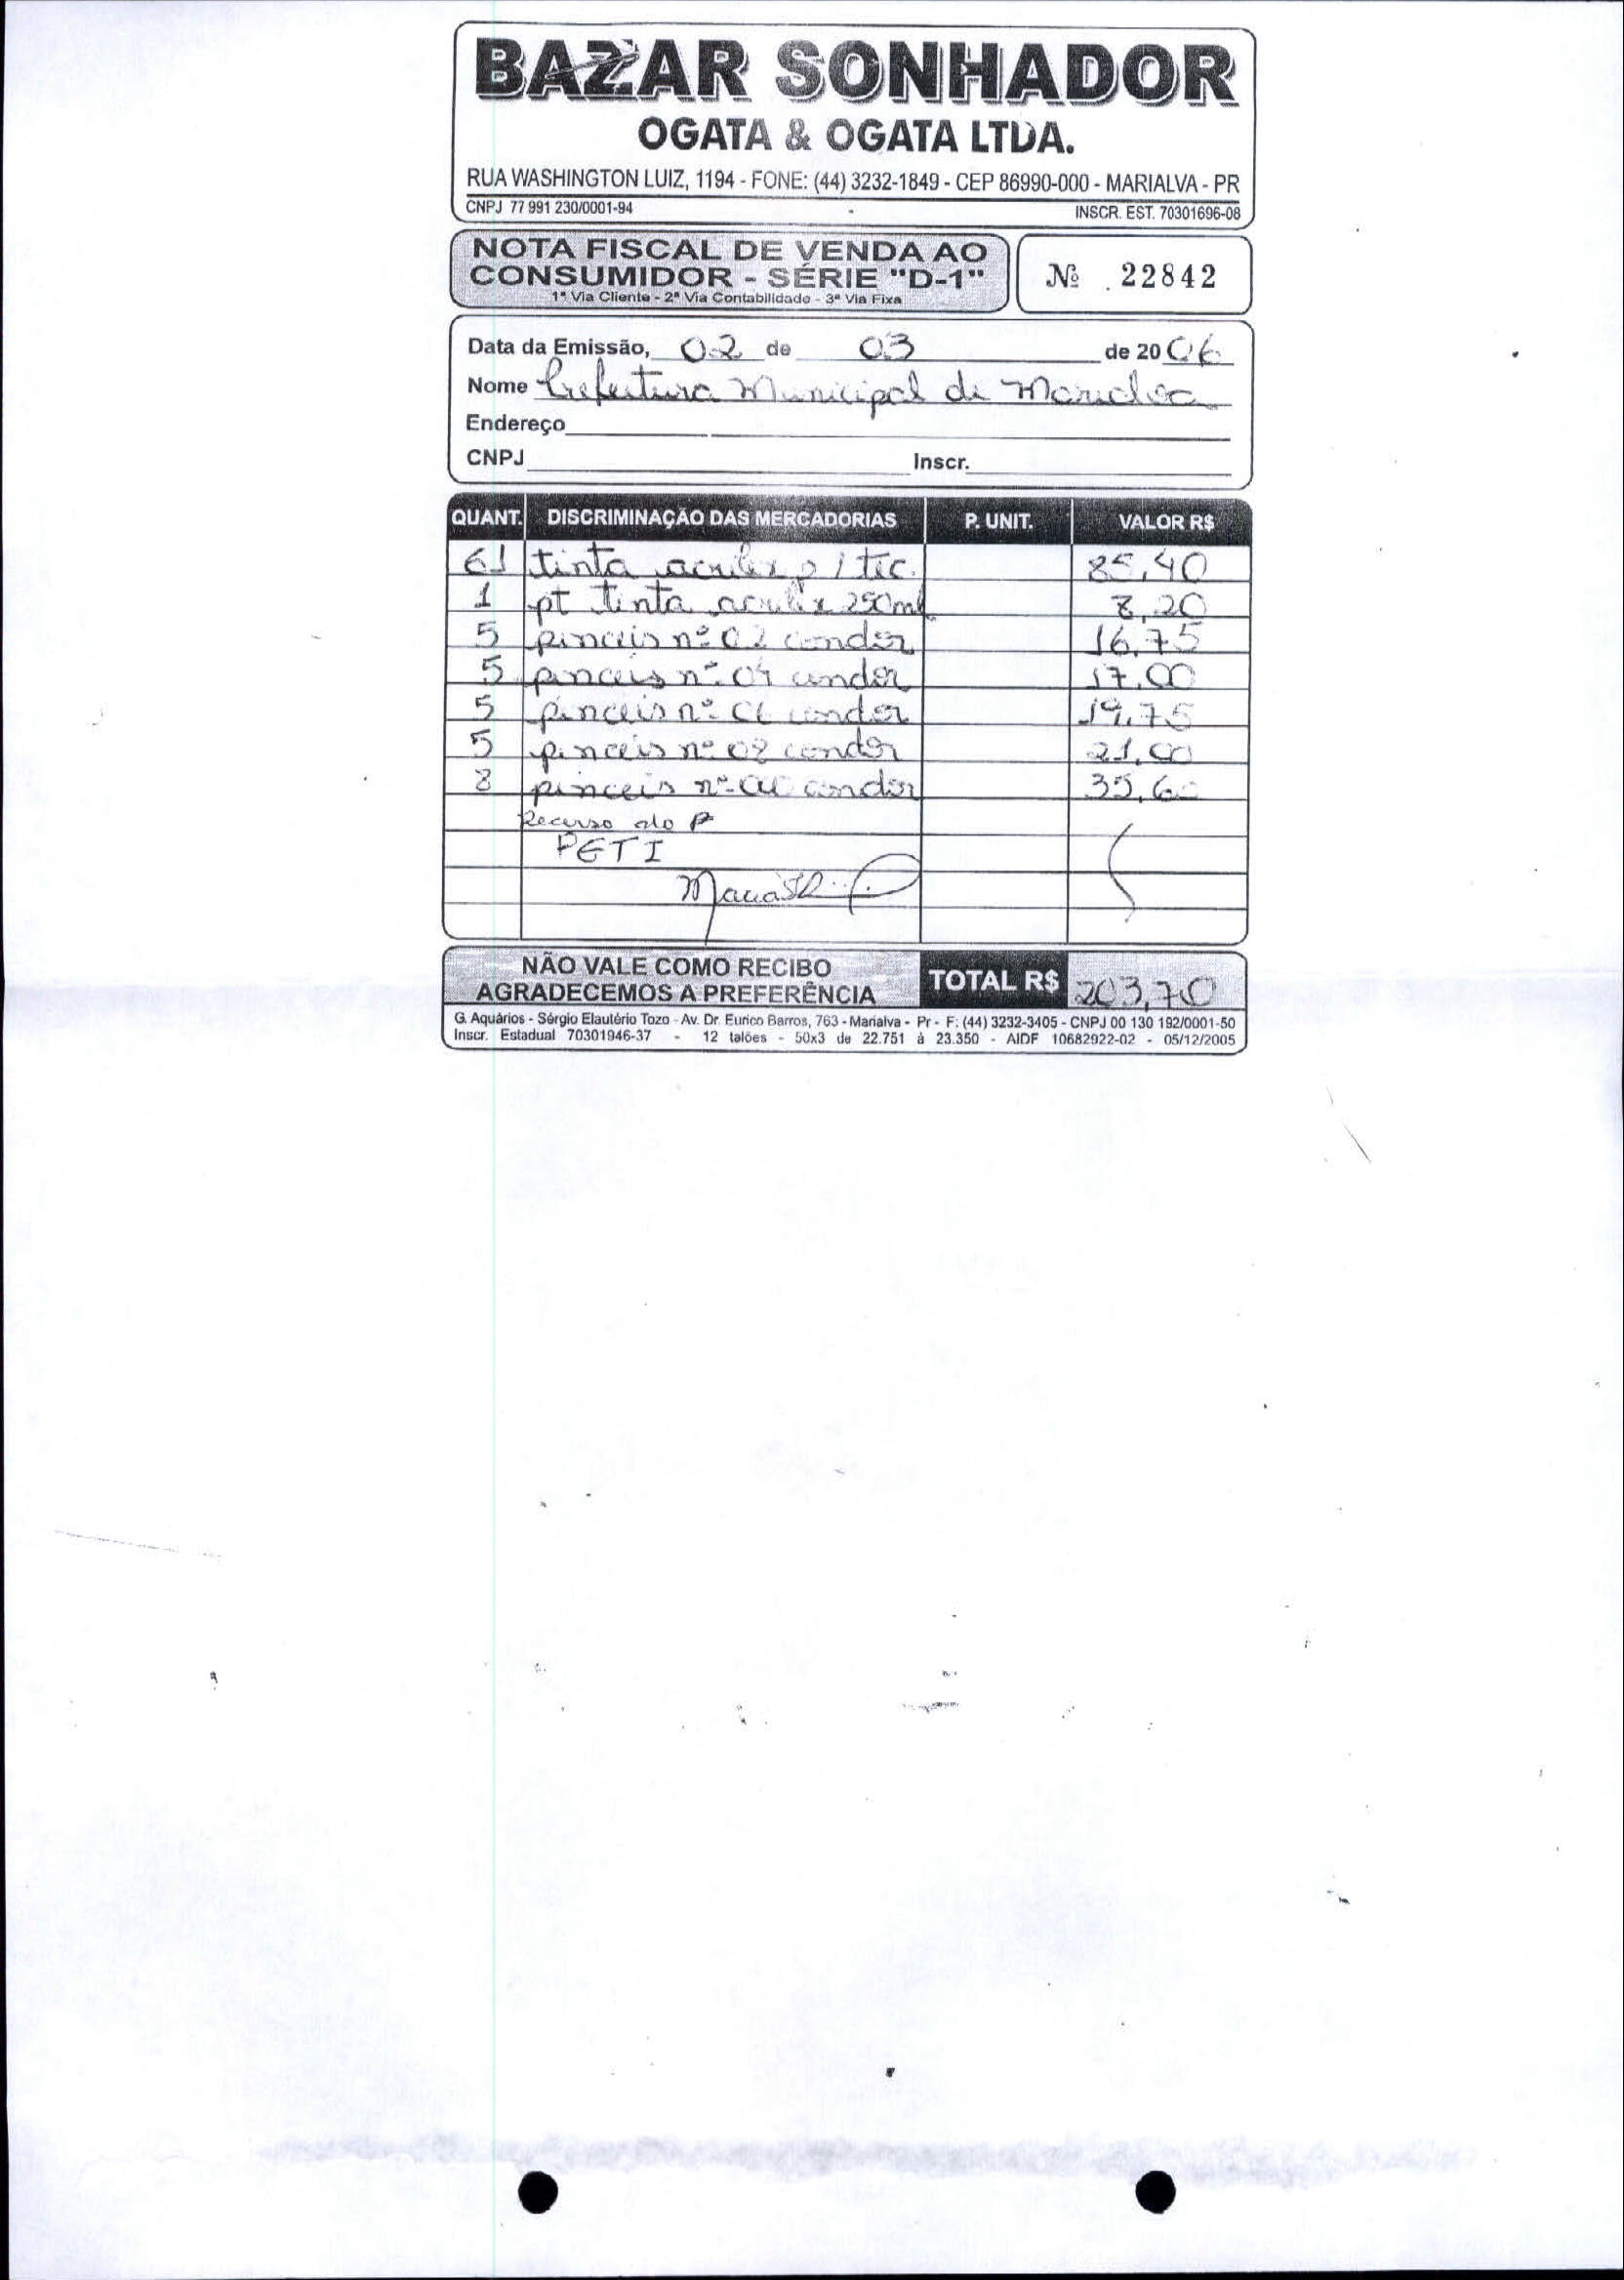 BAZAR SONHADOR
OGATA & OGATA LTDA.
RUA WASHINGTON LUIZ, 1194 - FONE: (44) 3232-1849 - CEP 86990-000 - MARIALVA - PR
CNPJ 77 991 230/0001-94 INSCR. EST. 70301696-08
NOTA FISCAL DE VENDA AO
CONSUMIDOR - SÉRIE "D-1"
1ª Via Cliente - 2ª Via Contabilidade - 3ª Via Fixa
Nº 22842
Data da Emissão, 02 de 03 de 2006
Nome Prefeitura Municipal de Marialva
Endereço
CNPJ Inscr.
QUANT. DISCRIMINAÇÃO DAS MERCADORIAS P. UNIT. VALOR R$
61 tinta acrilex p/ tec. 85,40
1 pt tinta acrilex 250ml 8,20
5 pinceis nº 02 condor 16,75
5 pinceis nº 04 condor 17,00
5 pinceis nº 06 condor 19,75
5 pinceis nº 08 condor 21,00
8 pinceis nº condor 35,60
Recurso do P
PETI
Maria
NÃO VALE COMO RECIBO
AGRADECEMOS A PREFERÊNCIA
TOTAL R$ 203,70
G. Aquários - Sérgio Elautério Tozo - Av. Dr. Eurico Barros, 763 - Marialva - Pr - F: (44) 3232-3405 - CNPJ 00 130 192/0001-50
Inscr. Estadual 70301946-37 - 12 talões - 50x3 de 22.751 à 23.350 - AIDF 10682922-02 - 05/12/2005